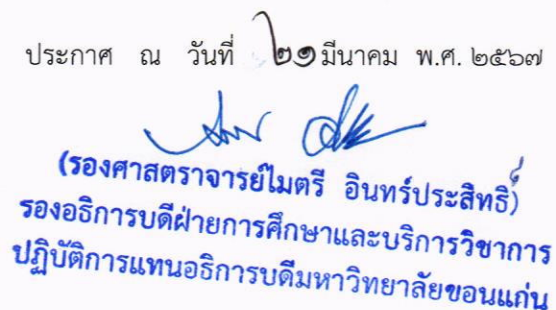 ประกาศ ณ วันที่ ๒๑ มีนาคม พ.ศ. ๒๕๖๗
(รองศาสตราจารย์ไมตรี อินทร์ประสิทธิ์)
รองอธิการบดีฝ่ายการศึกษาและบริการวิชาการ
ปฏิบัติการแทนอธิการบดีมหาวิทยาลัยขอนแก่น